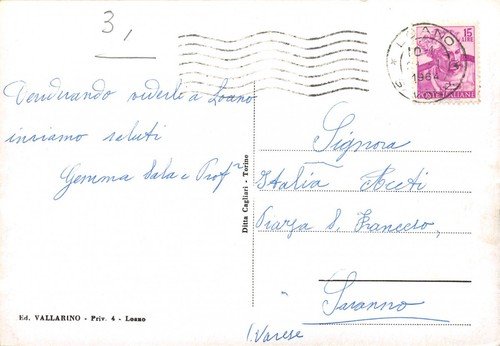 3,
LOANO
1964
15
LIRE
POSTE ITALIANE
rivederla a Loano
inviamo saluti
Gemma Sala e Prof
Ditta Cagliari - Torino
Signora
Italia Aceti
Piazza S. Francesco,
Saronno
(Varese
Ed. VALLARINO - Priv. 4 - Loano